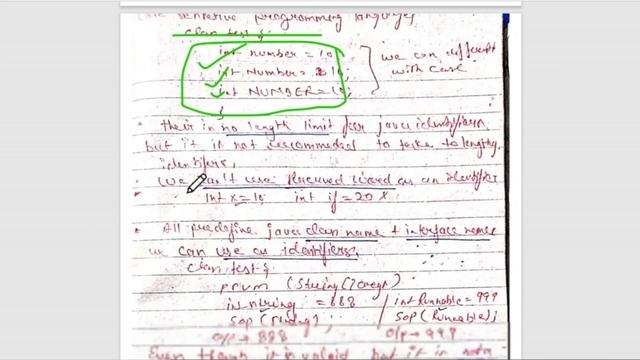 sensitive programming language,
class test {
int number = 10;
int Number = 10;
int NUMBER = 10;
}
we can different
with case
• their is no length limit for java identifiers
but it is not recommaded to take to lengthy
identifiers,
we can't use Reserved word as an identifier
int x=10 int if=20 X
• All predefine java class name + interface names
we can use as identifiers,
class test {
psvm (String[] args)
int String = 888
sop (String),
o/p → 888
int Runnable = 999
sop (Runnable);
o/p → 999
Even though it is valid but it is not